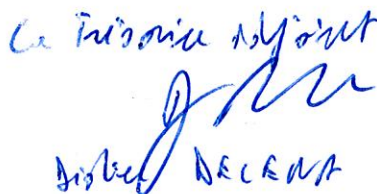 Le Trésorier Adjoint
Didier DECENA